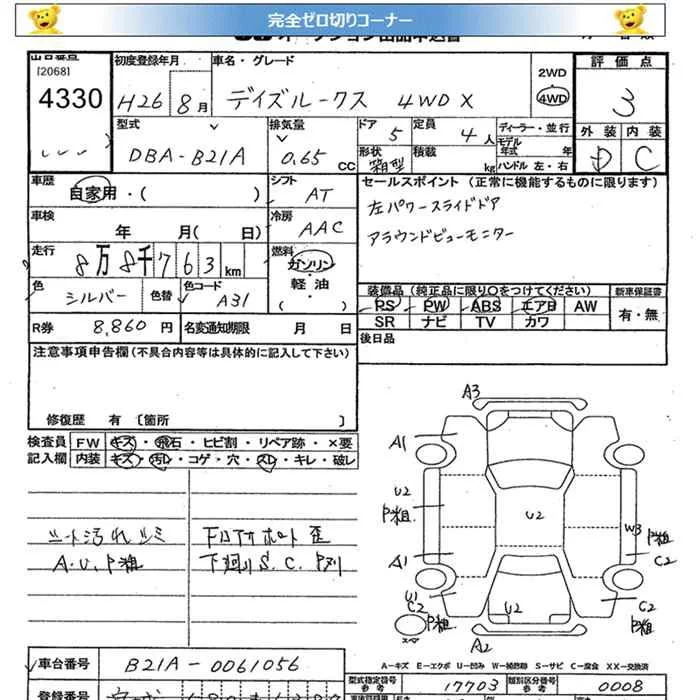 完全ゼロ切りコーナー
[2068]
4330
初度登録年月
H26 8月
車名・グレード
デイズルークス 4WD X
2WD
4WD
評価点
3
外装 内装
D C
型式
DBA-B21A
排気量
0.65 CC
ドア 5
定員 4人
形状 箱型
積載 kg
ディーラー・並行
モデル年式 年
ハンドル 左・右
車歴
自家用・( )
シフト
AT
車検
年 月( 日)
冷房
AAC
走行
8万8千763km
燃料
ガソリン
軽・油
( )
色
シルバー
色替
色コード
A31
R券 8,860円
名変通知期限 月 日
セールスポイント(正常に機能するものに限ります)
左パワースライドドア
アラウンドビューモニター
装備品(純正品に限り○をつけてください)
新車保証書
PS PW ABS エアB AW
SR ナビ TV カワ
有・無
後日品
注意事項申告欄(不具合内容等は具体的に記入して下さい)
修復歴 有 [箇所 ]
検査員 FW キズ・飛石・ヒビ割・リペア跡・×要
記入欄 内装 キズ・汚レ・コゲ・穴・スレ・キレ・破レ
シート汚れシミ
A.U.P粗
下回りS.C.P剥
A3
A1
U2
P粗
A1
U1
C2
P粗
スペア
U2
U2
W3
P粗
C2
C2
P粗
A2
A-キズ E-エクボ U-凹み W-補修跡 S-サビ C-腐食 X-要交換 XX-交換済
車台番号
B21A-0061056
型式指定番号
参考
17703
類別区分番号
参考
0008